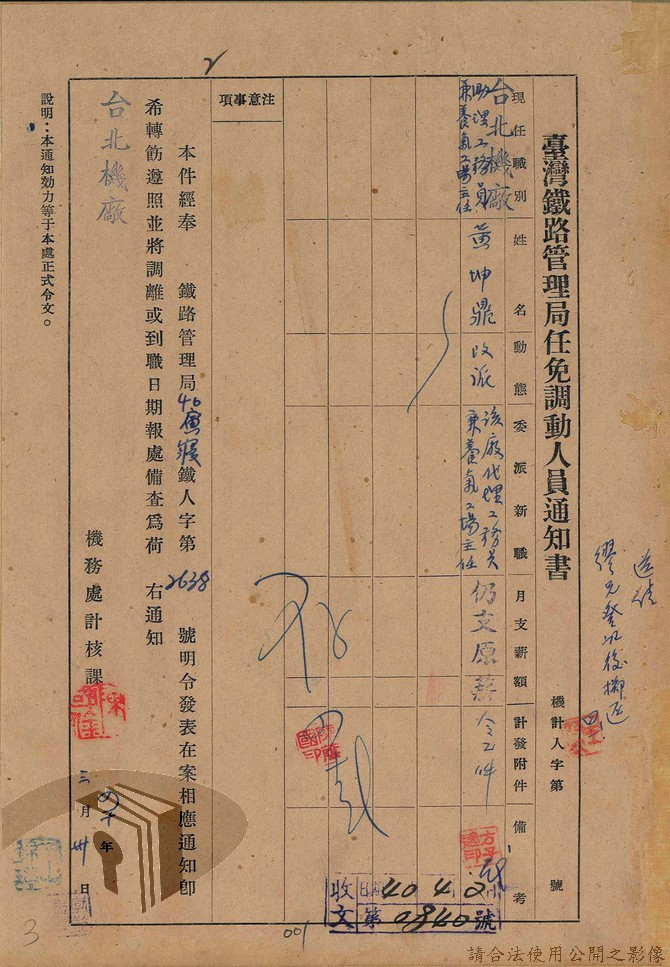 臺灣鐵路管理局任免調動人員通知書
機計人字第 號
現任職別
姓名
動態
委派新職
月支薪額
計發附件
備考
台北機廠
助理工務員
兼養氣工場主任
黃坤鼎
改派
該廠代理工務員
兼養氣工場主任
仍支原薪
令乙件
注意事項
本件經奉 鐵路管理局40寅 鐵人字第 2638 號明令發表在案相應通知即
希轉飭遵照並將調離或到職日期報處備查為荷 右通知
台北機廠
機務處計核課
四十年三月卅日
說明：本通知効力等于本處正式令文。
收文 40 4 2
第 0840 號
001
3
請合法使用公開之影像